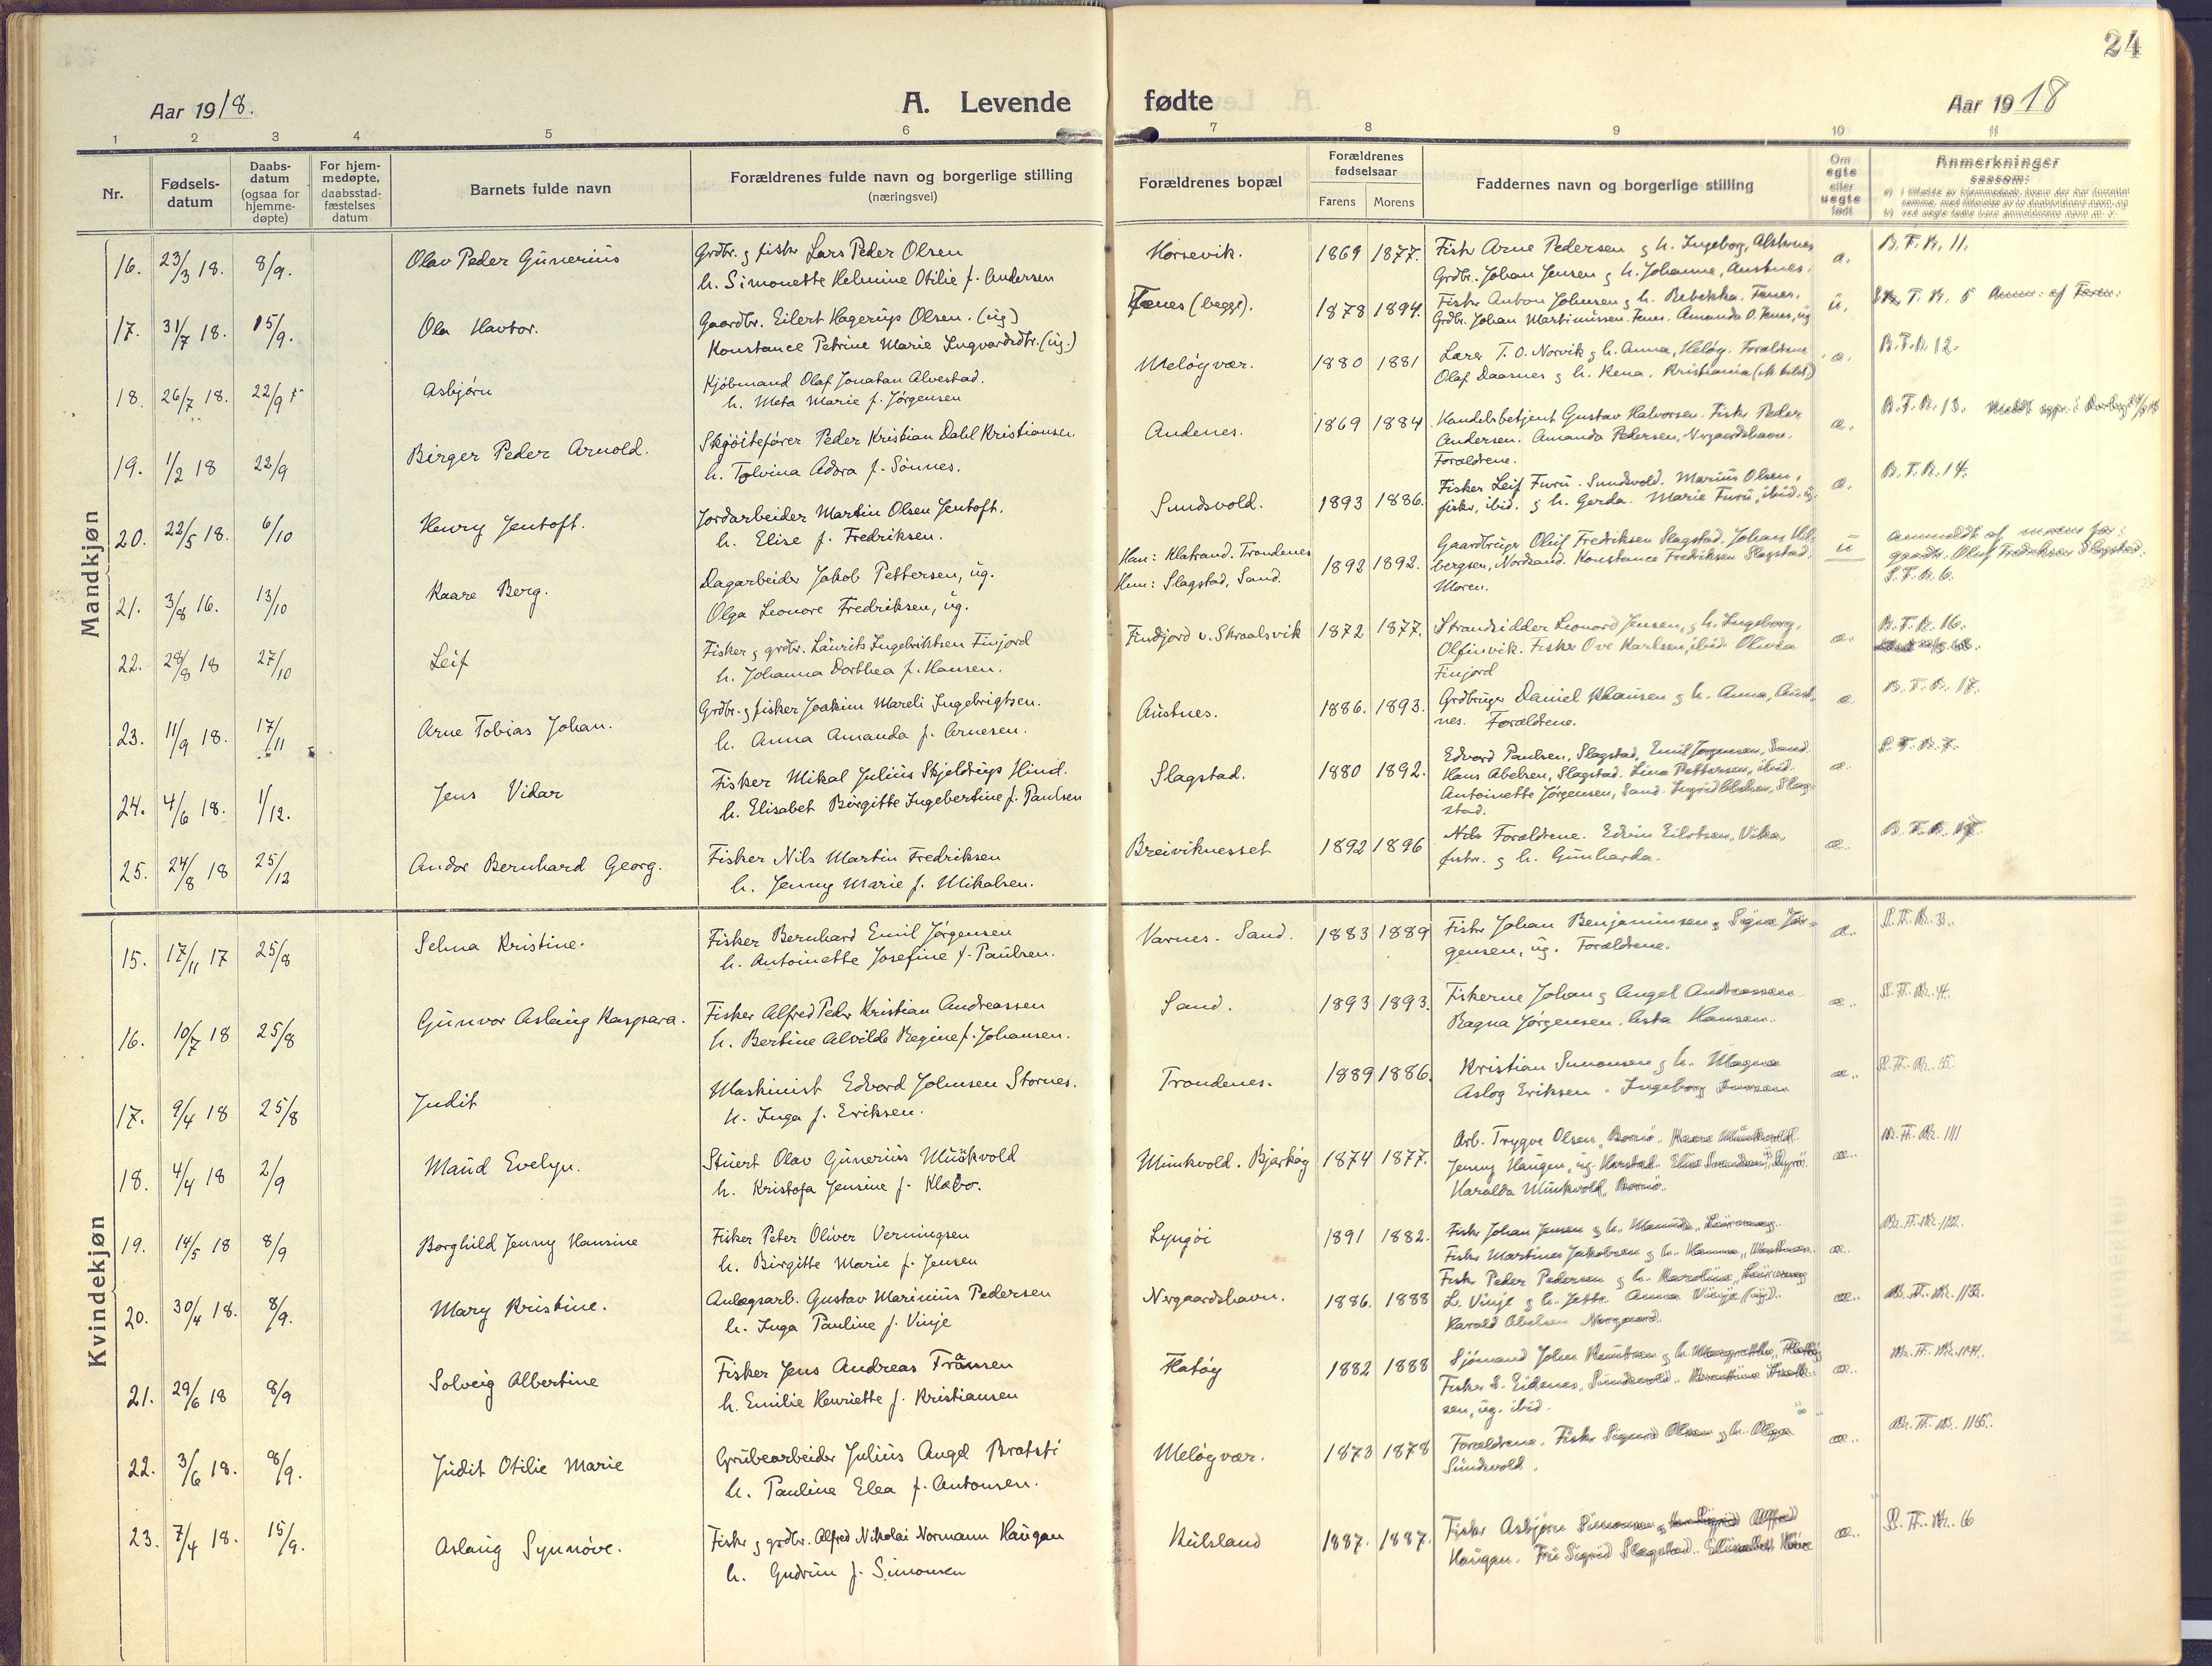 24
Aar 1918.
A. Levende
fødte
Aar 1918
1 2 3 4 5 6 7 8 9 10 11
Nr.
Fødsels-
datum
Daabs-
datum
(ogsaa for
hjemme-
døpte)
For hjem-
medøpte,
daabsstad-
fæstelses
datum
Barnets fulde navn
Forældrenes fulde navn og borgerlige stilling
(næringsvei)
Forældrenes bopæl
Forældrenes
fødselsaar
Farens
Morens
Faddernes navn og borgerlige stilling
Om
egte
eller
uegte
født
Anmerkninger
saasom:
Mandkjøn
16. 23/3 18. 8/9. Olav Peder Gunerius Grdbr. g fisker Lars Peder Olsen
h. Simonette Helmine Otilie f. Andersen
Horsevik. 1869 1877. Fisker Arne Pedersen g h. Ingeborg,
Grdbr. Johan Jensen g h. Johanne, Austnes.
æ. B.F.R. 11.
17. 31/7 18. 15/9. Ola Havbor. Gaardbr. Eilert Hagerups Olsen. (ug)
Konstance Petrine Marie Ingvardsdtr. (ug.)
Fænes (begge). 1878 1894. Fisker Anton Johnsen g h. Rebekka. Fenes.
Grdbr. Johan Martinussen. Fenes. Amanda O. Fenes, ug
u.
18. 26/7 18. 22/9 Asbjørn Kjøbmand Olaf Jonatan Alvestad.
h. Meta Marie f. Jørgensen
Meløyvær. 1880 1881 Lærer T. O. Norvik g h. Anna, Meløy. Forældrene
Olaf Daasnes g h. Rena. Kristiania
æ. B.F.R 12.
19. 1/2 18 22/9 Birger Peder Arnold. Skjøitefører Peder Kristian Dahl Kristiansen
h. Tolvina Adora f. Sønnes.
Andenes. 1869 1884 Handelsbetjent Gustav Halvorsen. Fisker Peder
Andersen. Amanda Pedersen, Nergaardshavn.
Forældrene.
æ. B.F.R. 13.
20. 22/5 18. 6/10 Henry Jentoft. Jordarbeider Martin Olsen Jentoft.
h. Elise f. Fredriksen.
Sundsvold. 1893 1886. Fisker Leif Furu. Sundsvold. Marius Olsen,
fisker, ibid. g h. Gerda. Marie Furu, ibid. ug
æ. B.F.R. 14.
21. 3/8 16. 13/10 Kaare Berg. Dagarbeider Jakob Pettersen, ug.
Olga Leonore Fredriksen, ug.
Han: Klatrand. Trondenes
Hun: Slagstad, Sand.
1892 1892. Gaardbruger Oluf Fredriksen Slagstad. Johan Hil-
bergsen, Nordsand. Konstance Fredriksen Slagstad.
Moren.
u anmeldt af morens far:
gaardb. Oluf Fredriksen Slagstad.
S.F.R. 6.
22. 28/8 18 27/10 Leif Fisker g grdbr. Laurits Ingebriktsen Finjord
h. Johanna Dorthea f. Hansen.
Findjord v. Skraalsvik 1872 1877. Strandsidder Leonard Jensen, g h. Ingeborg,
Olfinvik. Fisker Ove Karlsen, ibid. Olivia
Finjord
æ. B.F.R. 16.
23. 11/9 18. 17/11 Arne Tobias Johan. Grdbr. g fisker Joakim Mareli Ingebrigtsen.
h. Anna Amanda f. Arnesen.
Austnes. 1886. 1893. Grdbruger Daniel Klausen g h. Anna, Aust-
nes. Forældrene.
æ. B.F.R. 17.
24. 4/6 18. 1/12. Jens Vidar Fisker Mikal Julius Skjeldrup Hind.
h. Elisabet Birgitte Ingebertine f. Paulsen
Slagstad. 1880 1892. Edvard Paulsen, Slagstad, Emil Jørgensen, Sand.
Hans Abelsen, Slagstad. Lina Pettersen, ibid.
Antoinette Jørgensen, Sand. Ingrid Abelsen, Slag-
stad.
æ. S.F.R. 7.
25. 24/8 18 25/12 Andor Bernhard Georg. Fisker Nils Martin Fredriksen
h. Jenny Marie f. Mikalsen.
Breiviknesset 1892 1896 Forældrene. Edvin Eilertsen, Vika,
fisker. g h. Gunharda.
æ. B.F.R.
Kvindekjøn
15. 17/11 17 25/8 Selma Kristine. Fisker Bernhard Emil Jørgensen
h. Antoinette Josefine f. Paulsen.
Varnes. Sand. 1883 1889 Fisker Johan Benjaminsen g Signe Jør-
gensen, ug. Forældrene.
æ. S.F.R. 3.
16. 10/7 18 25/8 Gunvor Aslaug Kaspara. Fisker Alfred Peder Kristian Andreassen
h. Bertine Alvilde Regine f. Johansen.
Sand. 1893 1893. Fiskerne Johan g Angel Andreassen.
Ragna Jørgensen. Asta Hansen.
æ. S.F.R. 4.
17. 9/4 18 25/8 Judit Maskinist Edvard Johnsen Stornes.
h. Inga f. Eriksen.
Trondenes. 1889 1886. Kristian Simonsen g h. Magna
Aslog Eriksen. Ingeborg
æ. S.F.R. 5.
18. 4/4 18 2/9 Maud Evelyn. Stuert Olav Gunerius Munkvold
h. Kristofa Jensine f. Klæbo.
Munkvold. Bjarkøy 1874 1877. Arb. Trygve Olsen,
Jenny Haugen, ug. Harstad.
Haralda Munkvold,
æ. B.F.R. 11
19. 14/5 18 8/9 Borghild Jenny Hansine Fisker Peter Oliver Verningsen
h. Birgitte Marie f. Jensen
Lyngöi 1891 1882. Fisker Johan Jensen g h.
Fisker Martinus Jakobsen g h.
Fisker Peder Pedersen g h. Karoline,
æ. B.F.R. 12.
20. 30/4 18. 8/9. Mary Kristine. Anlægsarb. Gustav Marinius Pedersen
h. Inga Pauline f. Vinje
Nergaardshavn. 1886. 1888 L. Vinje g h. Jette. Anna Vinje (ug).
Harald Abelsen Nergaard.
æ. B.F.R. 13.
21. 29/6 18 8/9 Solveig Albertine Fisker Jens Andreas Fransen
h. Emilie Henriette f. Kristiansen
Flatøy 1882 1888 Sjömand John Knutsen g h.
Fisker S. Eidenes, Sundsvold.
sen, ug. ibid.
æ. B.F.R. 14.
22. 3/6 18. 8/9. Judit Otilie Marie Grubearbeider Julius Angel Bratsti
h. Pauline Elea f. Antonsen.
Meløyvær. 1873 1878 Forældrene. Fisker Sigurd Olsen g h. Olga
Sundsvold.
æ. B.F.R. 15.
23. 7/4 18. 15/9. Aslaug Synnöve. Fisker g grdbr. Alfred Nikolai Normann Haugan
h. Gudrun f. Simonsen
Kulsland 1887. 1887. Fisker Asbjørn Simonsen Alfred
Haugan. Fru Sigrid Slagstad.
æ. S.F.R. 6